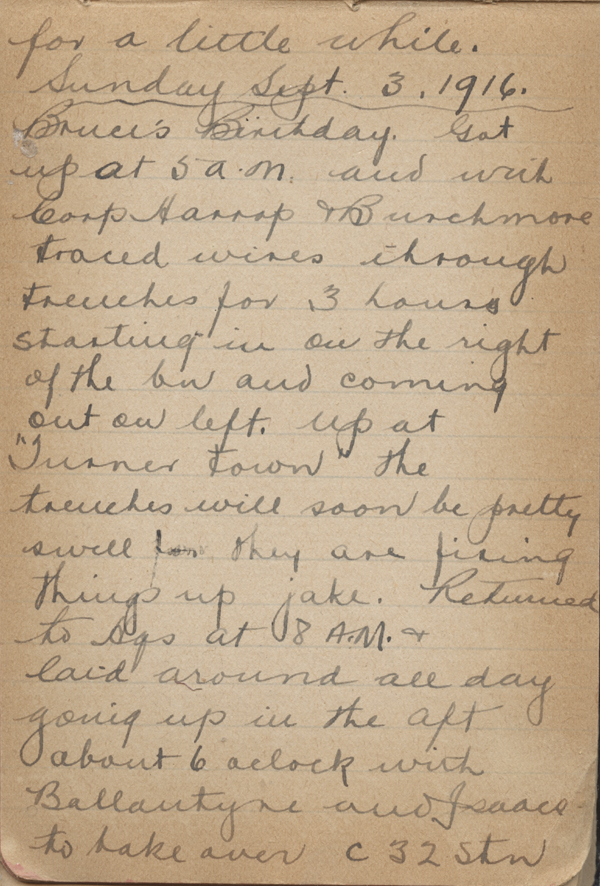 for a little while.
Sunday Sept. 3, 1916.
Bruce's Birthday. Got
up at 5 a.m. and with
Corp Harrop & Burchmore
traced wires through
trenches for 3 hours
starting in on the right
of the bn and coming
out on left. Up at
"Turner Town" the
trenches will soon be pretty
swell for they are fixing
things up jake. Returned
to Sgs at 8 A.M. &
laid around all day
going up in the aft
about 6 oclock with
Ballantyne and Isaacs
to take over C 32 Stn